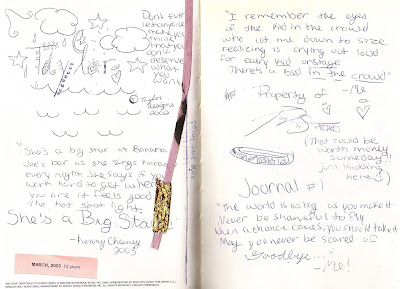 Don't Ever
let anyone
make you
think
that you
don't
deserve
what
you
want
Taylor
designs
2003
"She's a big star at Banana
Joe's bar as she sings karaoke
every night she says if you
work hard to get where
you are it feels good
the hot spot light.
She's a Big Star"
-Kenny Chesney
2003
MARCH, 2003 13 years
"I remember the eyes
of the kid in the crowd
who cut me down to size
realizing is crying out loud
for every kid onstage
There's a kid in the crowd"
-Me
Property of
(That could be
worth money
someday!!
just kidding
hehe :))
Journal #1
"The world is as big as you make it
Never be shameful to fly
when a chance comes, you should take it
May you never be scared
Goodbye..."
-Me!